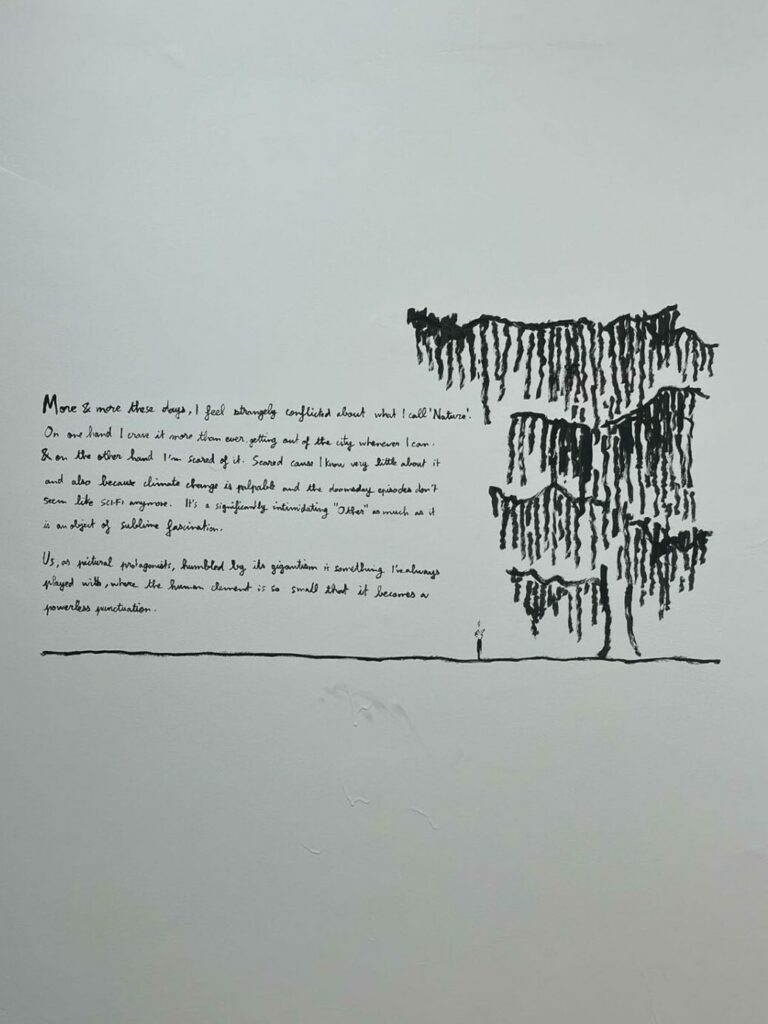 More & more these days, I feel strangely conflicted about what I call 'Nature'.
On one hand I crave it more than ever, getting out of the city whenever I can.
& on the other hand I'm scared of it. Scared cause I know very little about it
and also because climate change is palpable and the doomsday episodes don't
seem like SCI-Fi anymore. It's a significantly intimidating "Other" as much as it
is an object of sublime fascination.
Us, as pictural protagonists, humbled by its gigantism is something I've always
played with, where the human element is so small that it becomes a
powerless punctuation.